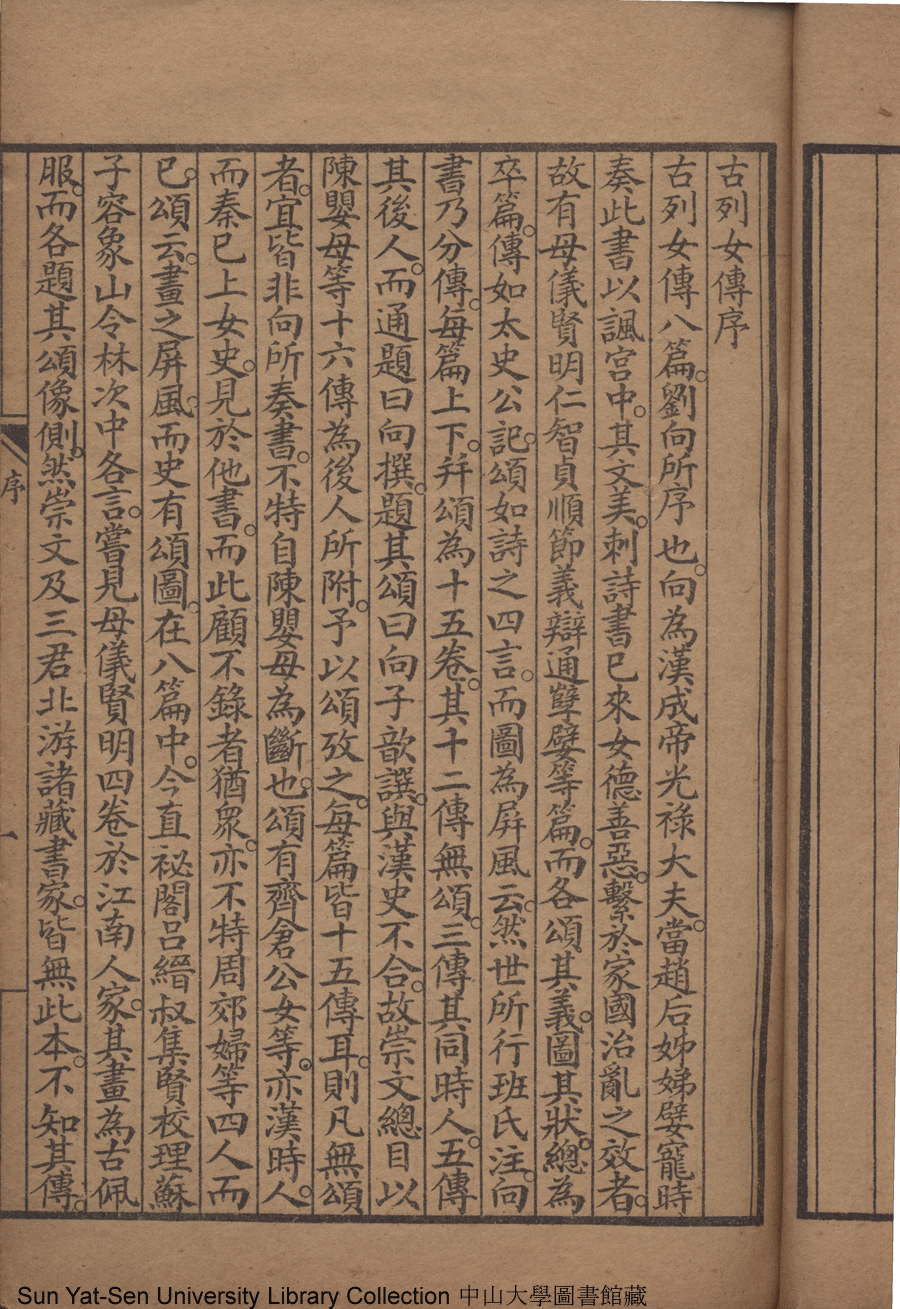 古列女傳序
古列女傳八篇。劉向所序也。向為漢成帝光祿大夫。當趙后姊娣嬖寵時
奏此書以諷宮中。其文美。刺詩書已來女德善惡。繫於家國治亂之效者。
故有母儀賢明仁智貞順節義辯通孽嬖等篇。而各頌其義。圖其狀。總為
卒篇。傳如太史公記。頌如詩之四言。而圖為屏風云。然世所行班氏注。向
書乃分傳。每篇上下。并頌為十五卷。其十二傳無頌。三傳其同時人。五傳
其後人。而通題曰向撰。題其頌曰向子歆譔。與漢史不合。故崇文總目以
陳嬰母等十六傳為後人所附。予以頌攷之。每篇皆十五傳耳。則凡無頌
者。宜皆非向所奏書。不特自陳嬰母為斷也。頌有齊倉公女等。亦漢時人。
而秦已上女史。見於他書。而此顧不錄者猶眾。亦不特周郊婦等四人而
已。頌云。畫之屏風。而史有頌圖。在八篇中。今直祕閣呂縉叔集賢校理蘇
子容象山令林次中各言。嘗見母儀賢明四卷於江南人家。其畫為古佩
服。而各題其頌像側。然崇文及三君北游諸藏書家。皆無此本。不知其傳。
序
一
Sun Yat-Sen University Library Collection 中山大學圖書館藏